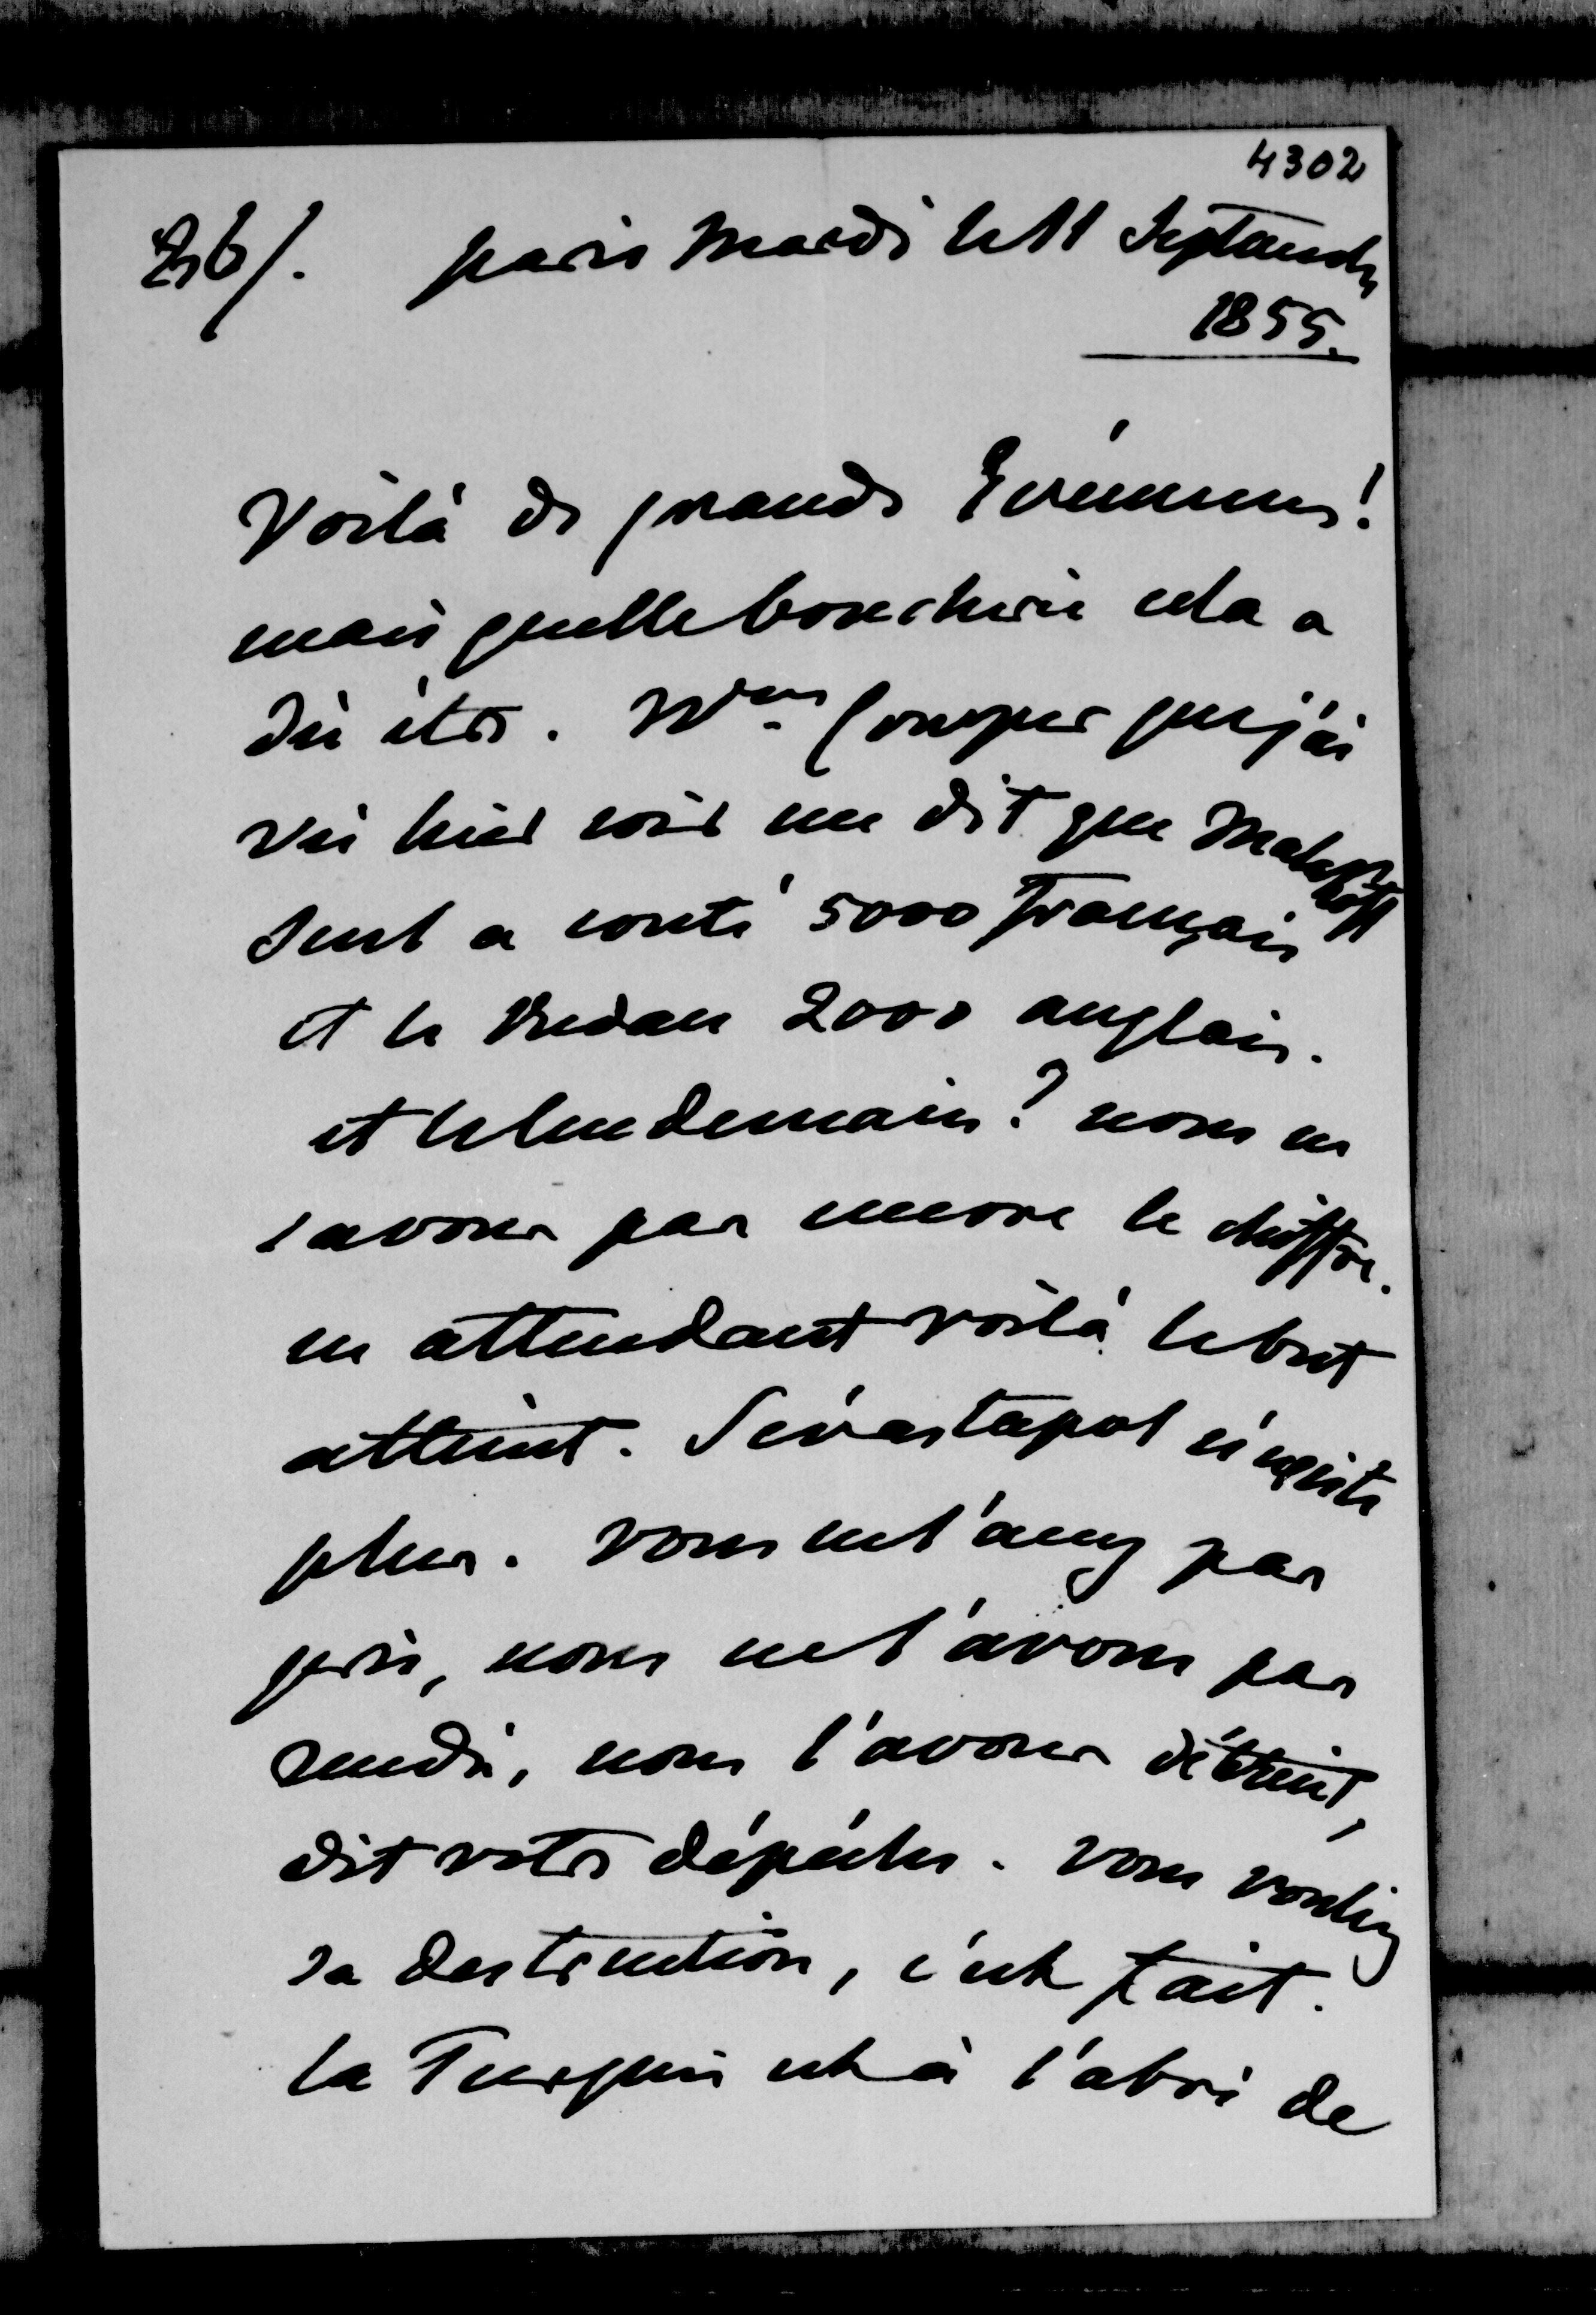 4302
26/. paris Mardi le 11 Septembre
1855.
Voilà de grands Evénemens!
mais quelle boucherie cela a
dû être. Wm Cowper que j'ai
vu hier soir me dit que Malakoff
seul a couté 5000 Français
et le Redan 2000 anglais.
et le lendemain? nous ne
savons pas encore le chiffre.
en attendant voilà le but
atteint. Sévastapol n'existe
plus. vous ne l'avez pas
pris, nous ne l'avons pas
rendu, nous l'avons détruit,
dit votre dépêche. vous vouliez
sa destruction, c'est fait.
la Turquie est à l'abri de